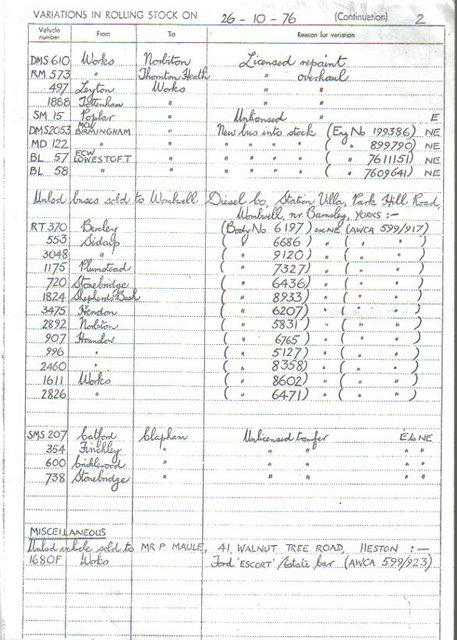 VARIATIONS IN ROLLING STOCK ON 26 - 10 - 76 (Continuation) 2
Vehicle number From To Reason for variation
DMS 610 Works Norbiton Licensed repaint
RM 573 " Thornton Heath " overhaul
497 Leyton Works " "
1888 Tottenham " " "
SM 15 Poplar " Unlicensed E
DMS2053 MCW BIRMINGHAM " New bus into stock (Eng No 199386) NE
MD 122 " " " ( " 899790) NE
BL 57 ECW LOWESTOFT " " ( " 7611151) NE
BL 58 " " " ( " 7609641) NE
Unlcd buses sold to Wombwell Diesel Co, Station Villa, Park Hill Road,
Wombwell, nr. Barnsley, YORKS :-
RT 370 Bexley (Body No 6197) (AWCA 599/917)
553 Sidcup ( " 6686) " ( " " )
3048 " ( " 9120) " ( " " )
1175 Plumstead ( " 7327) " ( " " )
720 Stonebridge ( " 6436) " ( " " )
1824 Shepherds Bush ( " 8933) " ( " " )
3475 Hendon ( " 6207) " ( " " )
2892 Norbiton ( " 5831) " ( " " )
907 Hounslow ( " 6765) " ( " " )
996 " ( " 5127) " ( " " )
2460 " ( " 8358) " ( " " )
1611 Works ( " 8602) " ( " " )
2826 " ( " 6471) " ( " " )
SMS 207 Catford Clapham Unlicensed transfer E to NE
354 Finchley " " " " "
600 Cricklewood " " " " "
738 Stonebridge " " " " "
MISCELLANEOUS
Unlcd vehicle sold to MR P. MAULE, 41, WALNUT TREE ROAD, HESTON :-
1680F Works Ford 'ESCORT' Estate Car (AWCA 599/923)